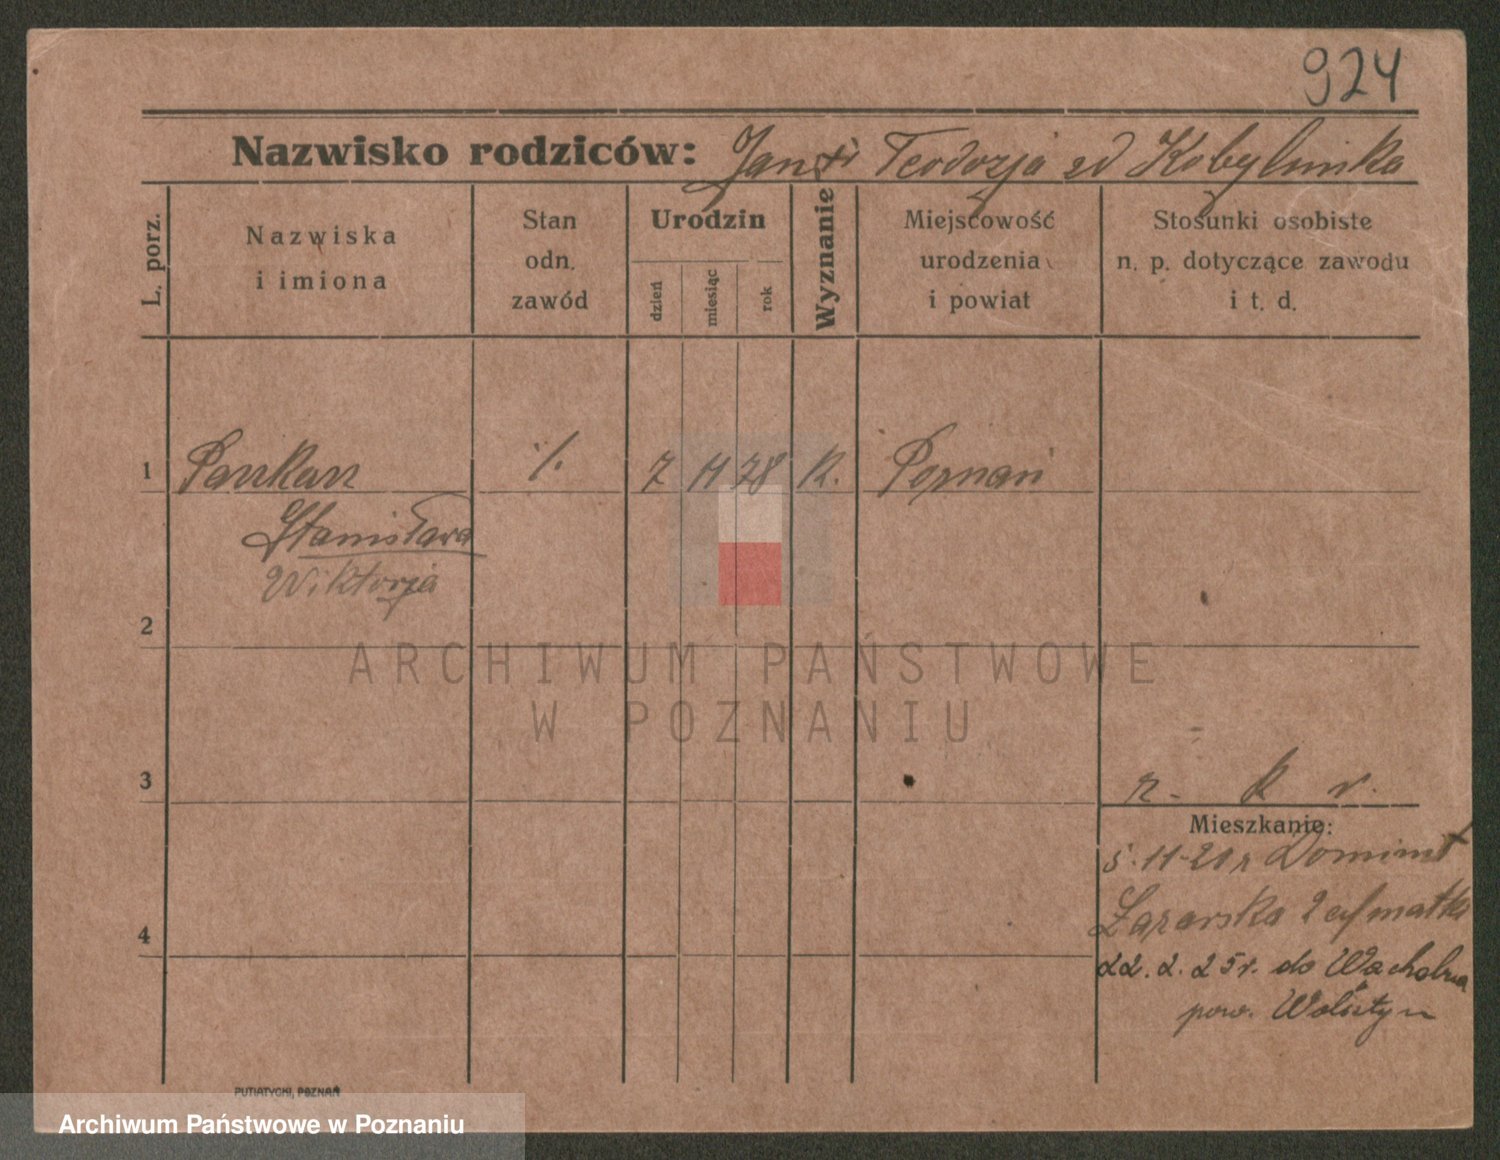 924
Nazwisko rodziców: Jan i Teodozja zd Kobylinska
L. porz.
Nazwiska
i imiona
Stan
odn.
zawód
Urodzin
dzień
miesiąc
rok
Wyznanie
Miejscowość
urodzenia
i powiat
Stosunki osobiste
n. p. dotyczące zawodu
i t. d.
1 Pankan /. 7 11 28 R. Poznań
Stanisława
Wiktorja
2
ARCHIWUM PAŃSTWOWE
W POZNANIU
3
r. k r.
Mieszkanie:
5.11-21 r
Łazarska 2 matka
4
22.2.25 r. do
pow. Wolsztyn
PUTIATYCKI, POZNAŃ
Archiwum Państwowe w Poznaniu